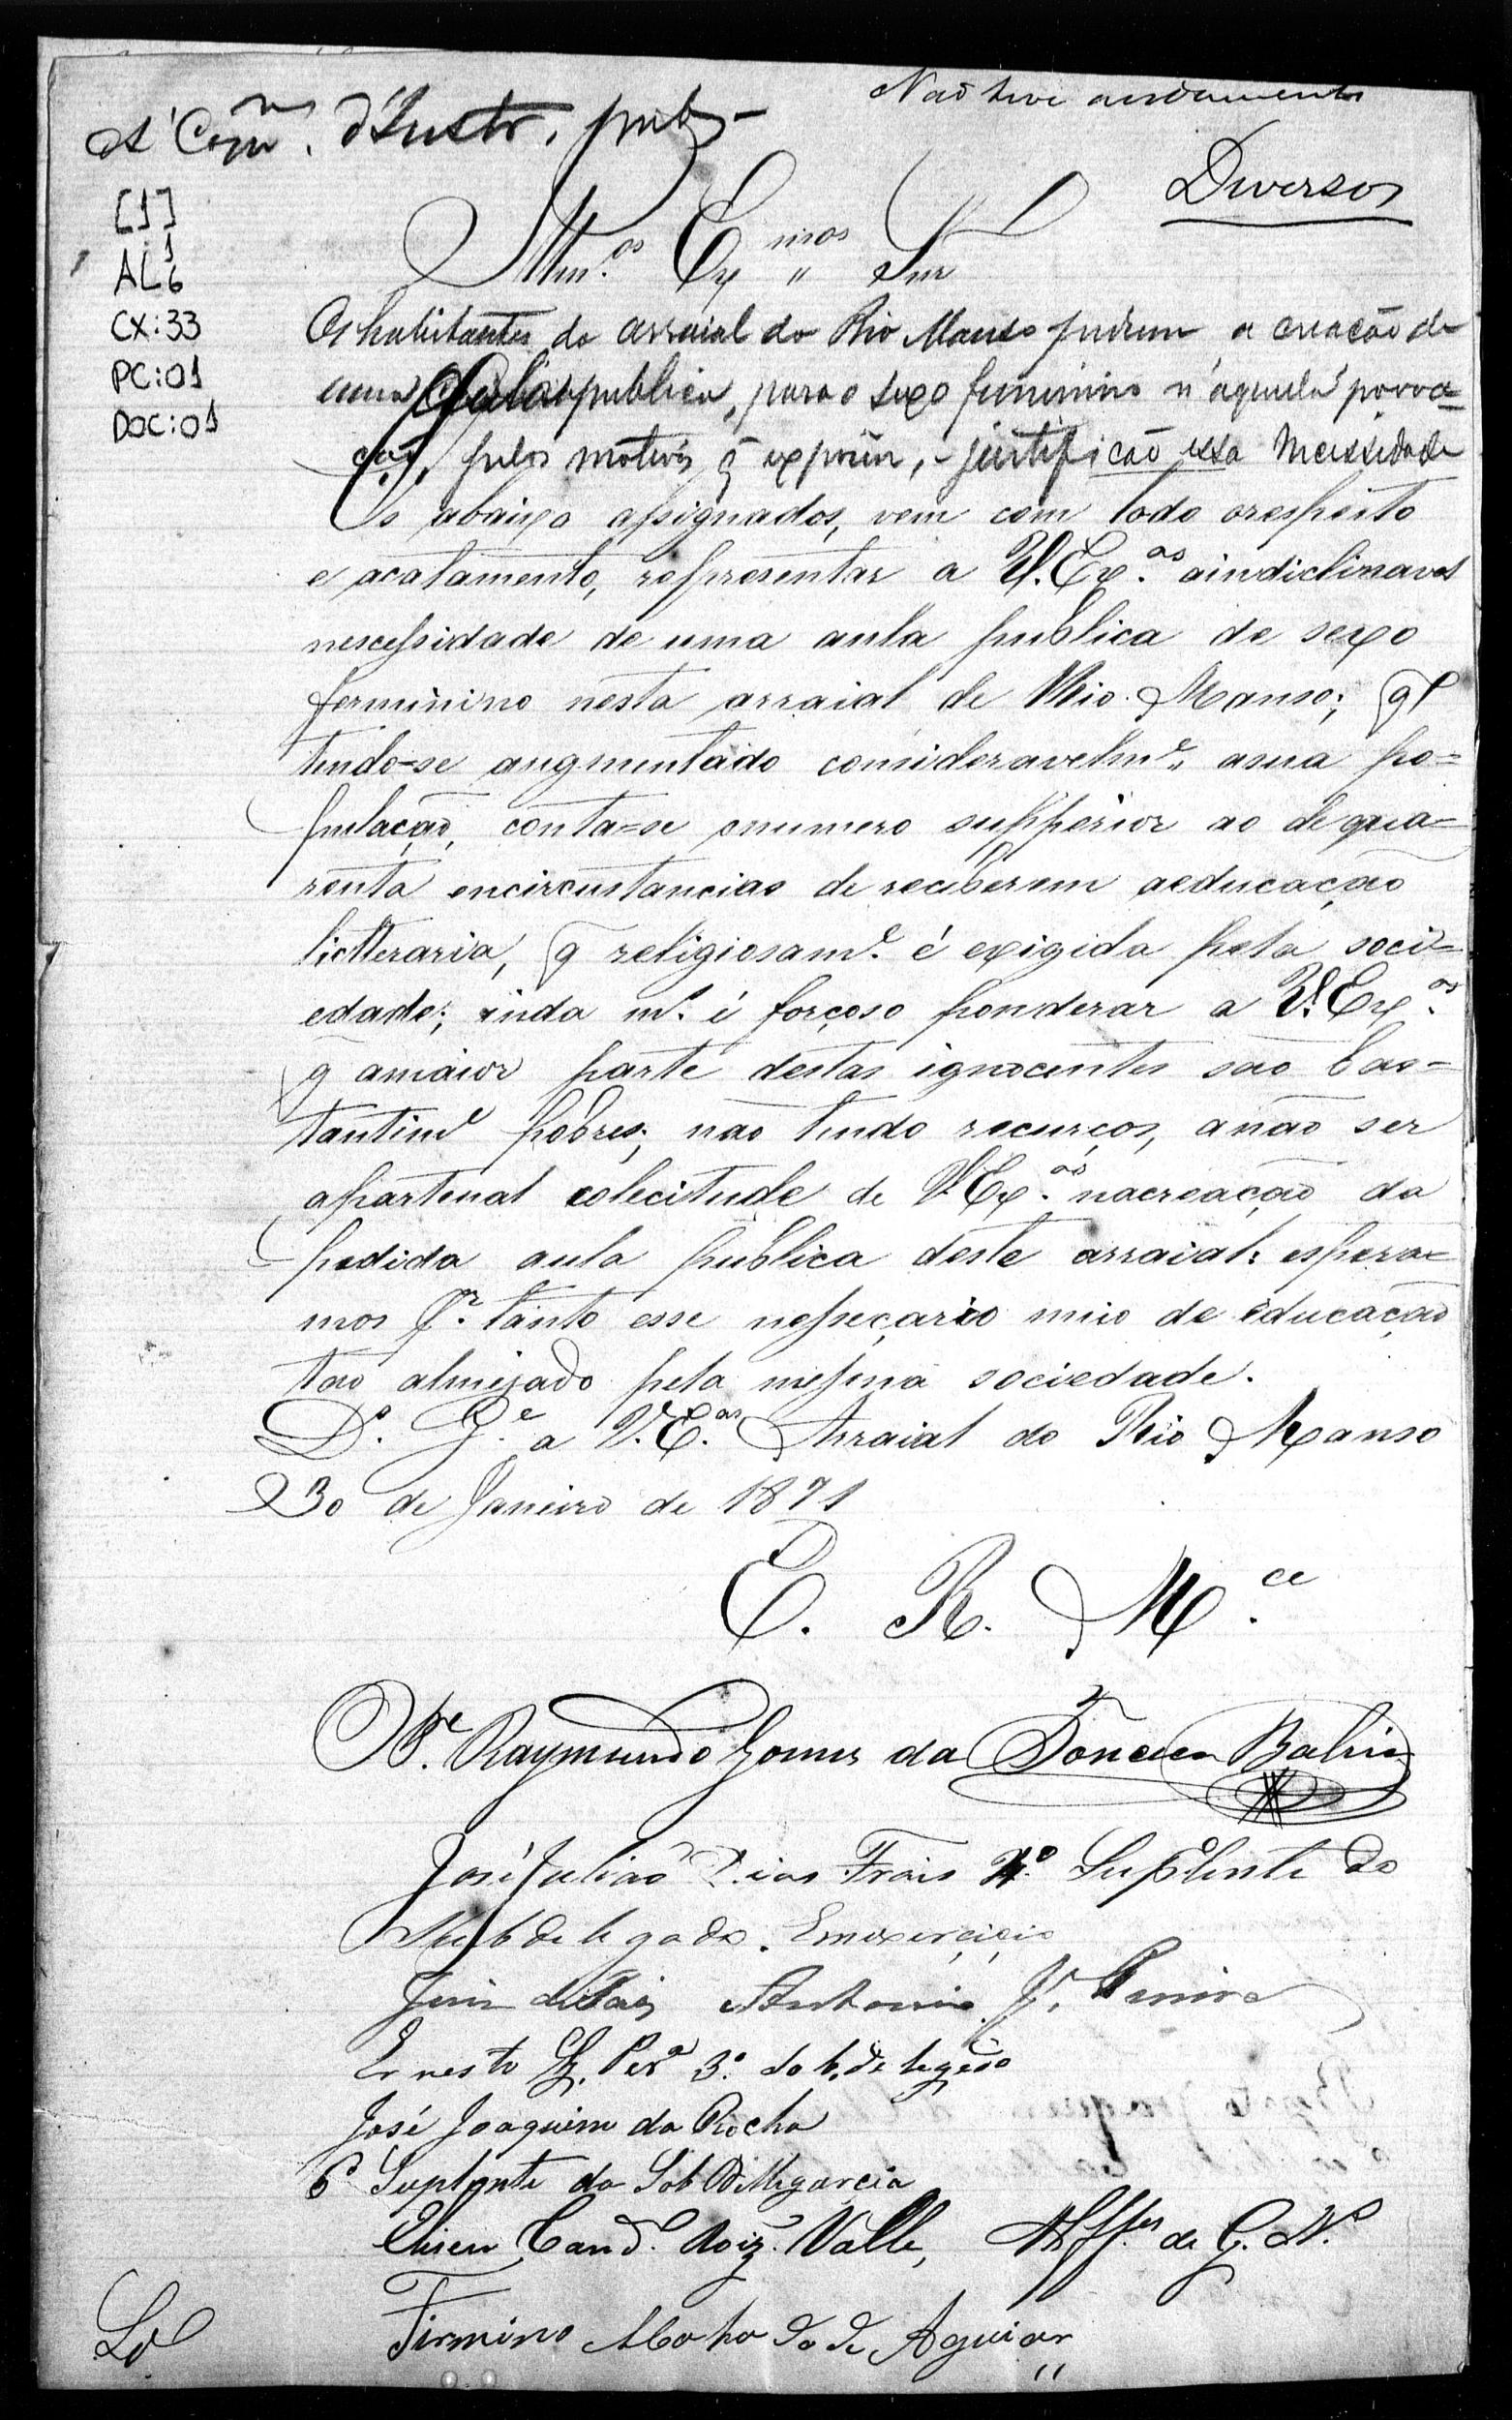 Não teve andamento
A' Com.m d'Instr. pub.
Diversos
[1]
AL 1
6
CX:33
PC:01
DOC:01
Illm.os Ex mos Snr
Os habitantes do arraial do Rio Manso pedem a creação de
uma publica, para o sexo feminino n'aquela povoa=
ção, pelos motivos q̃ expoem, justificão essa necessidade
Os abaixo assignados, vem com todo orespeito
e acatamento, representar a V.Ex.as aindiclinavel
nescessidade de uma aula publica de sexo
ferminino nesta arraial de Rio Manso; q̃
tendo-se augmentado consideravelm.e asua po=
pulação, conta=se onumero supperior ao de qua=
renta encircustancias de receberem aeducação
lictteraria, q̃ religiosam.e é exigida pela soci=
edade; inda m.s é forçoso ponderar a V.Ex.as
q̃ amaior parte destas ignocentes são bas=
tantime pobres; não tendo recurços, anão ser
apartenal solecitude de V.Ex.as nacreação da
pedida aula publica deste arraial: espera=
mos p.r tanto esse nesseçario meio de educação
tão almejado pela mesma sociedade.
D.s G.e a V.E.as Arraial do Rio Manso
30 de Janeiro de 1871
E. R. M.ce
P.e Raymundo Gomes da Fonceca Bahia
José Julião Dias Frois 4.o Suplente do
Subdelegado. Emexerçiçio
Juis de Pais Antonio
Ernesto Per.a 3.o sob.delegado
José Joaquim da Rocha
6.o Suplente do Sob Dellegarcia
Cand.o Roiz. Valle, Alff.es da G. N.
Firmino Machado de Aguiar